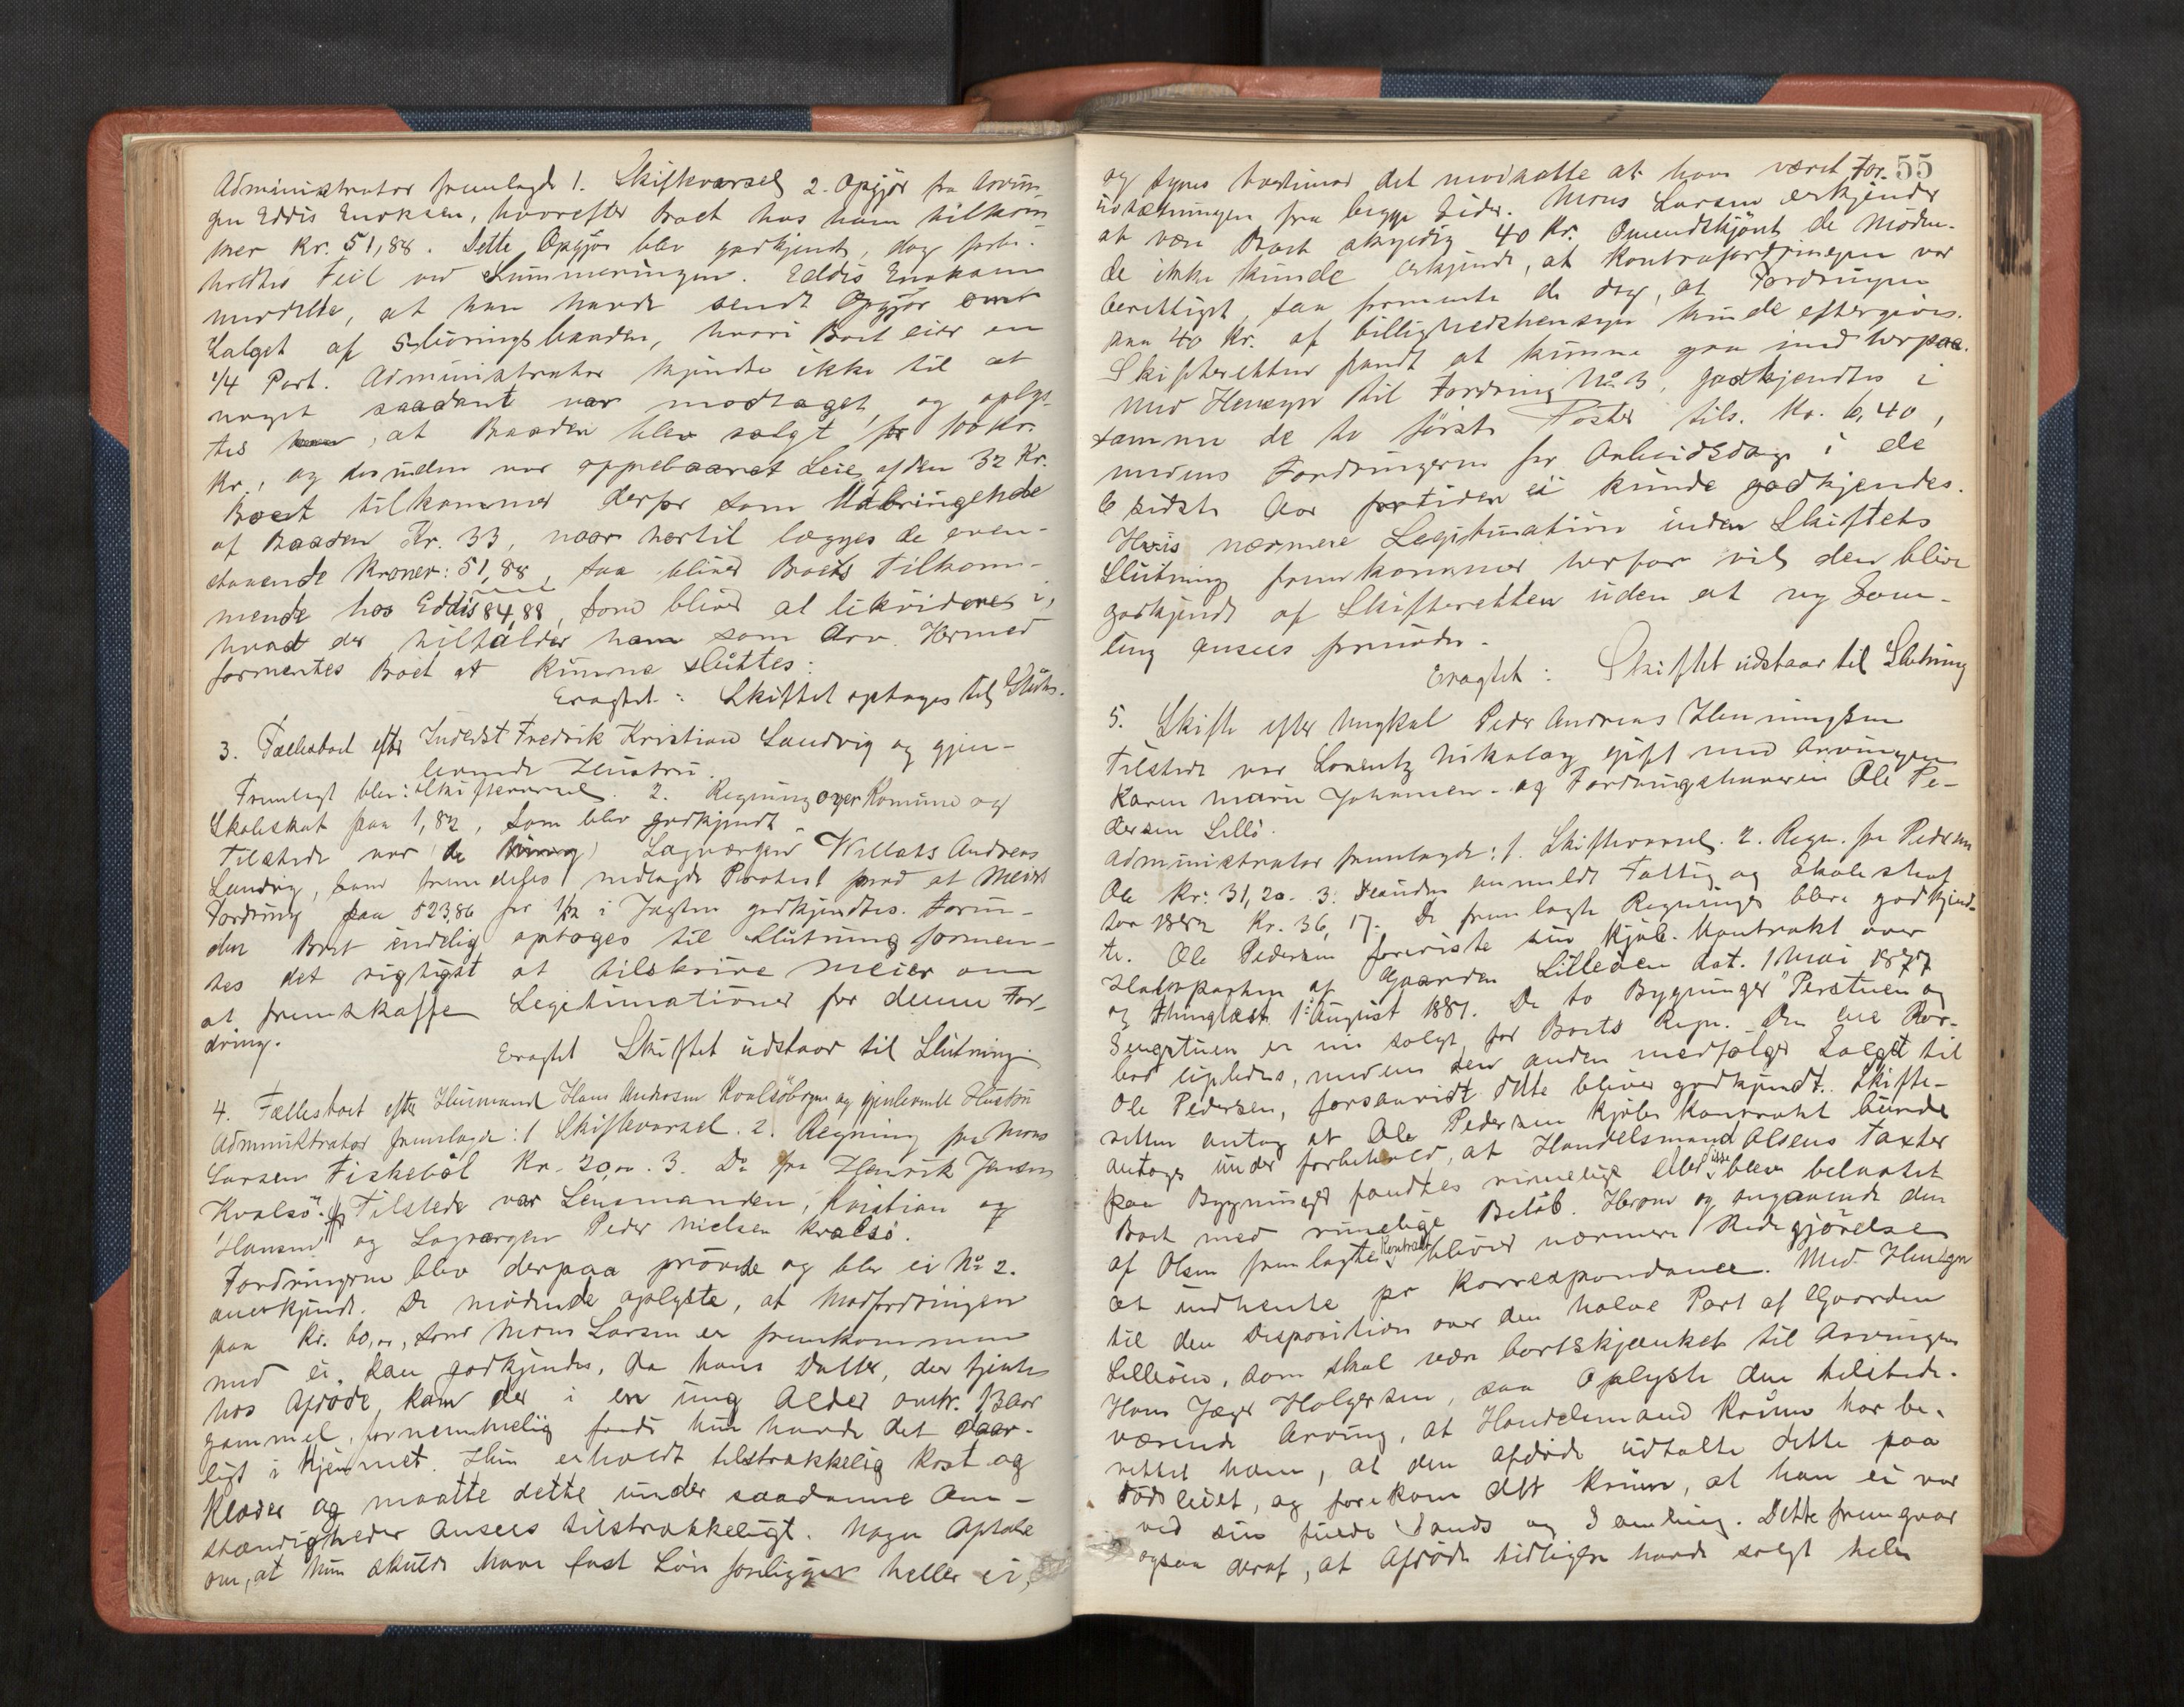 Administrator fremlagde 1. Skiftevarsel 2. Opgjør fra Arvin-
gen Eddis Enoksen, hvorefter Boet hos ham tilkom-
mer Kr. 51,88. Dette Opgjør blev godkjendt, dog forbe-
holdtes Feil ved Summeringen. Eddis Enoksen
meddelte, at han havde sendt Opgjør over
Salget af Støringsbaaden, hvori Boet eier en
1/4 Part. Administrator kjendte ikke til at
noget saadant var modtaget, og oplys-
tes, at Baaden blev solgt for 100 Kr.
Kr., og desuden var oppebaaret Leie af den 32 Kr.
Boet tilkommer derfor som Udbringende
af Baaden Kr. 33, naar hertil lægges de oven-
staaende Kroner: 51,88, saa bliver Boets Tilkom-
mende hos Eddis 84,88, som bliver at likvidere i,
hvad der tilfalder ham som Arv. Hermed
formentes Boet at kunne sluttes.
Eragtet: Skiftet optages til Slutn.
3. Fællesboet efter Inderst Fredrik Kristian Sandvig og gjen-
levende Hustru.
Fremlagt blev: Skiftevarsel. 2. Regning over Komune og
Skoleskat paa 1,82, som blev godkjendt.
Tilstede var Lagværgen Andreas
Sandvig, fremdeles nedlagde Protest mod at Meiers
Fordring paa 523,86 for 1/2 i Jagten godkjendtes. Forin-
den Boet endelig optages til Slutning formen-
tes det rigtigst at tilskrive Meier om
at fremskaffe Legitimationer for denne For-
dring.
Eragtet Skiftet udstaar til Slutning.
4. Fællesboet efter Husmand Hans Andersen Kvalsöbogen og gjenlevende Hustru
Administrator fremlagde: 1 Skiftevarsel. 2. Regning fra Mons
Larsen Fiskeböl Kr. 20,00. 3. Do fra Henrik Jensen
Kvalsö. Tilstede var Lensmanden, Kristian
Hansen og Lagværgen Peder Nielsen Kvalsö.
Fordringerne blev derpaa prövede og blev ei No 2.
anerkjendt. De mødende oplyste, at Modfordringen
paa Kr. 60,00, som Mons Larsen er fremkommen
med ei kan godkjendes, da hans Datter, der tjente
hos Afdøde kom der i en ung Alder omtr. 13 Aar
gammel, fornemmelig fordi hun havde det daar-
ligt i Hjemmet. Hun erholdt tilstrækkelig Kost og
Klæder og maatte dette under saadanne Om-
stændigheder ansees tilstrækkeligt. Nogen Aftale
om, at hun skulde have fast Løn foreligger heller ei,
55
og synes tvertimod det modsatte at have været For-
udsætningen fra begge Sider. Mons Larsen erkjender
at være Boet skyldig 40 Kr. Omendskjønt de Møden-
de ikke kunde erkjende, at Kontrafordringen var
berettiget, saa formente de dog, at Fordringen
paa 40 Kr. af billighedshensyn kunde eftergives.
Skifteretten fandt at kunne gaa ind herpaa.
Med Hensyn til Fordring No 3, godkjendtes i
samme de to første Poster tils. Kr. 6,40,
medens Fordringerne for Arbeidsdage i de
6 sidste Aar fortiden ei kunde godkjendes.
Hvis nærmere Legitimation inden Skiftets
Slutning fremkommer herfor vil den blive
godkjendt af Skifteretten uden at ny Sam-
ling ansees fornøden.
Eragtet: Skiftet udstaar til Slutning
5. Skifte efter Ungkal Peder Andreas Henningsen
Tilstede var Lorentz Nikolay gift med Arvingen
Karen Marie Johannen - og Fordringshaveren Ole Pe-
dersen Lillö.
Administrator fremlagde: 1. Skiftevarsel. 2. Regn. fra Pedersen
Ole Kr. 31,20. 3. anmeldt Fattig og Skoleskat
for 1882 Kr. 36,17. De fremlagte Regninger blev godkjend-
te. Ole Pedersen foreviste sin Kjøbe-Kontrakt over
Halvparten af Gaarden Lilleöen dat. 1 Mai 1877
og thinglæst 1 August 1881. De to Bygninger "Perstuen og
Sengstuen er nu solgt for Boets Regn. Den ene
medens den anden medfølger Salget til
Ole Pedersen, forsaavidt dette bliver godkjendt. Skifte-
retten antog at Ole Pedersen Kjøbe Kontrakt burde
antages under forbehold, at Handelsmand Olsens Taxter
paa Bygninger fandtes rimelige eller disse blev belastet
Boet med rimelige Beløb. Herom og angaaende den
af Olsen fremlagte Kontrakt bliver nærmere Redegjörelse
at indhente pr Korrespondance. Med Hensyn
til den Disposition over den halve Part af Gaarden
Lilleöen, som skal være bortskjænket til Arvingen
Hans Jæger Holgersen, saa oplyste den tilstede-
værende Arving, at Handelsmand Krüne har be-
rettet ham, at den afdøde udtalte dette paa
dødsleiet, og forekom det Krüne, at han ei var
ved sin fulde Sands og Samling. Dette fremgaar
ogsaa deraf, at Afdøde tidligere havde solgt hele